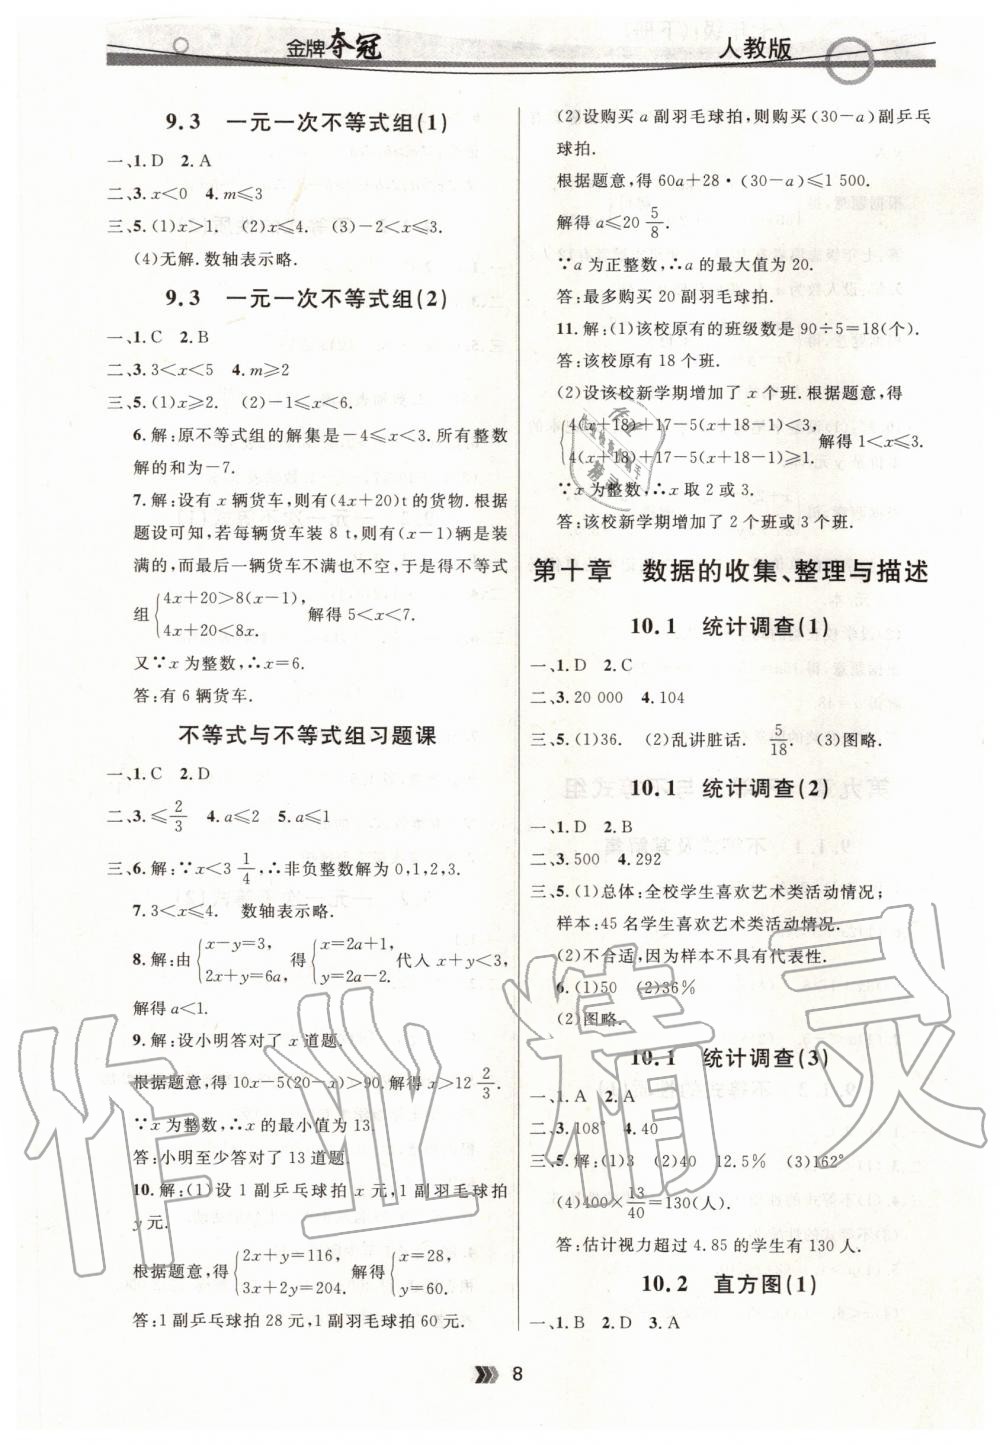 金牌夺冠
人教版
9.3 一元一次不等式组(1)
一、1. D 2. A
二、3. x<0 4. m⩽3
三、5. (1)x>1. (2)x⩽4. (3)-2<x⩽3.
(4)无解. 数轴表示略.
9.3 一元一次不等式组(2)
一、1. C 2. B
二、3. 3<x<5 4. m⩾2
三、5. (1)x⩾2. (2)-1⩽x<6.
6. 解:原不等式组的解集是-4⩽x<3. 所有整数
解的和为-7.
7. 解:设有 x 辆货车,则有(4x+20)t 的货物. 根据
题设可知,若每辆货车装 8 t,则有(x-1)辆是装
满的,而最后一辆货车不满也不空,于是得不等式
组{4x+20>8(x-1), 4x+20<8x. 解得 5<x<7.
又∵x 为整数,∴x=6.
答:有 6 辆货车.
不等式与不等式组习题课
一、1. C 2. D
二、3. ⩽2/3 4. a⩽2 5. a⩽1
三、6. 解:∵x<3 1/4,∴非负整数解为 0,1,2,3.
7. 3<x⩽4. 数轴表示略.
8. 解:由{x-y=3, 2x+y=6a, 得{x=2a+1, y=2a-2. 代入 x+y<3,
解得 a<1.
9. 解:设小明答对了 x 道题.
根据题意,得 10x-5(20-x)>90. 解得 x>12 2/3.
∵x 为整数,∴x 的最小值为 13.
答:小明至少答对了 13 道题.
10. 解:(1)设 1 副乒乓球拍 x 元,1 副羽毛球拍
y 元.
根据题意,得{2x+y=116, 3x+2y=204. 解得{x=28, y=60.
答:1 副乒乓球拍 28 元,1 副羽毛球拍 60 元.
(2)设购买 a 副羽毛球拍,则购买(30-a)副乒乓
球拍.
根据题意,得 60a+28·(30-a)⩽1 500.
解得 a⩽20 5/8.
∵a 为正整数,∴a 的最大值为 20.
答:最多购买 20 副羽毛球拍.
11. 解:(1)该校原有的班级数是 90÷5=18(个).
答:该校原有 18 个班.
(2)设该校新学期增加了 x 个班. 根据题意,得
{4(x+18)+17-5(x+18-1)<3, 4(x+18)+17-5(x+18-1)⩾1. 解得 1<x⩽3.
∵x 为整数,∴x 取 2 或 3.
答:该校新学期增加了 2 个班或 3 个班.
第十章 数据的收集、整理与描述
10.1 统计调查(1)
一、1. D 2. C
二、3. 20 000 4. 104
三、5. (1)36. (2)乱讲脏话. 5/18. (3)图略.
10.1 统计调查(2)
一、1. D 2. B
二、3. 500 4. 292
三、5. (1)总体:全校学生喜欢艺术类活动情况;
样本:45 名学生喜欢艺术类活动情况.
(2)不合适,因为样本不具有代表性.
6. (1)50 (2)36%
(2)图略.
10.1 统计调查(3)
一、1. A 2. A
二、3. 108° 4. 40
三、5. 解:(1)3 (2)40 12.5% (3)162°
(4)400×13/40=130(人).
答:估计视力超过 4.85 的学生有 130 人.
10.2 直方图(1)
一、1. B 2. D 3. A
8
作业精灵